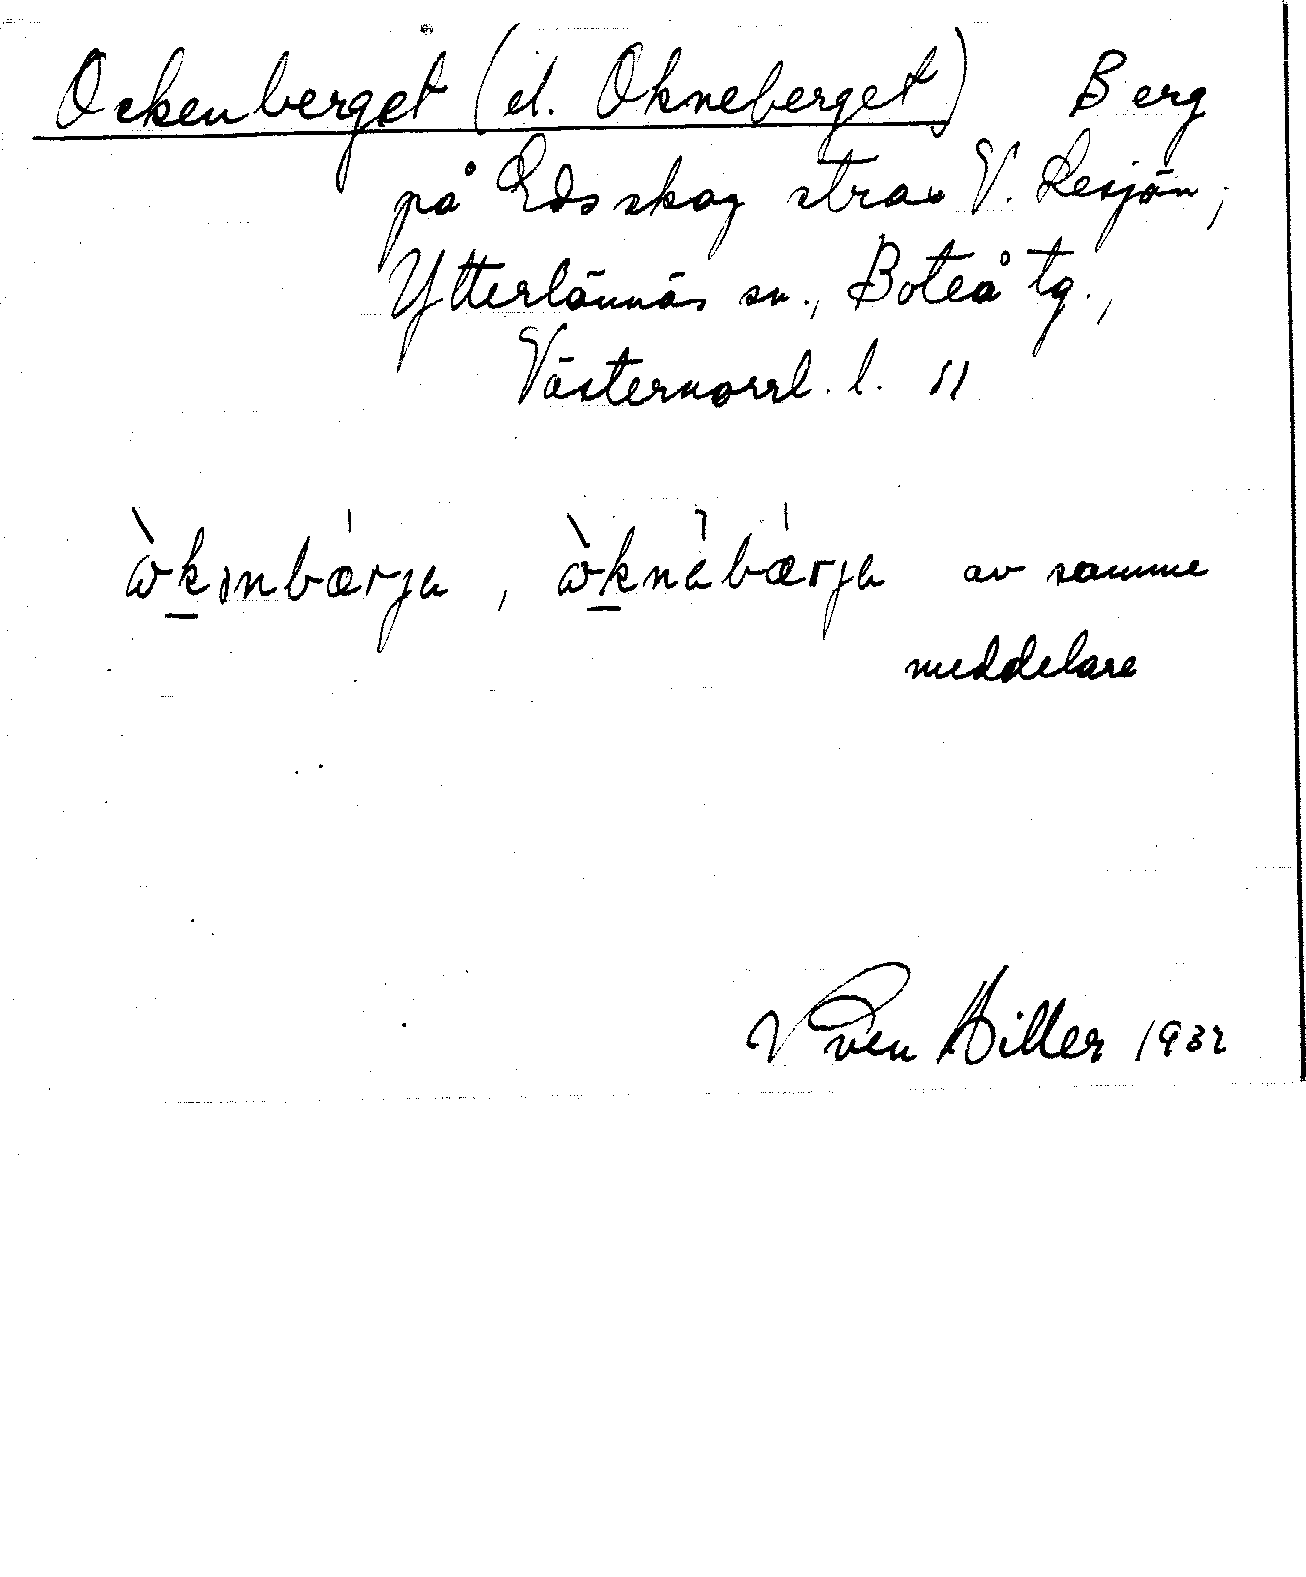 Ockenberget (el. Okneberget) Berg
på Edsskog strax V. Lesjön,
Ytterlännäs sn., Boteå tg.,
Västernorrl. l. 11
av samme
meddelare
Sven Hiller 1932